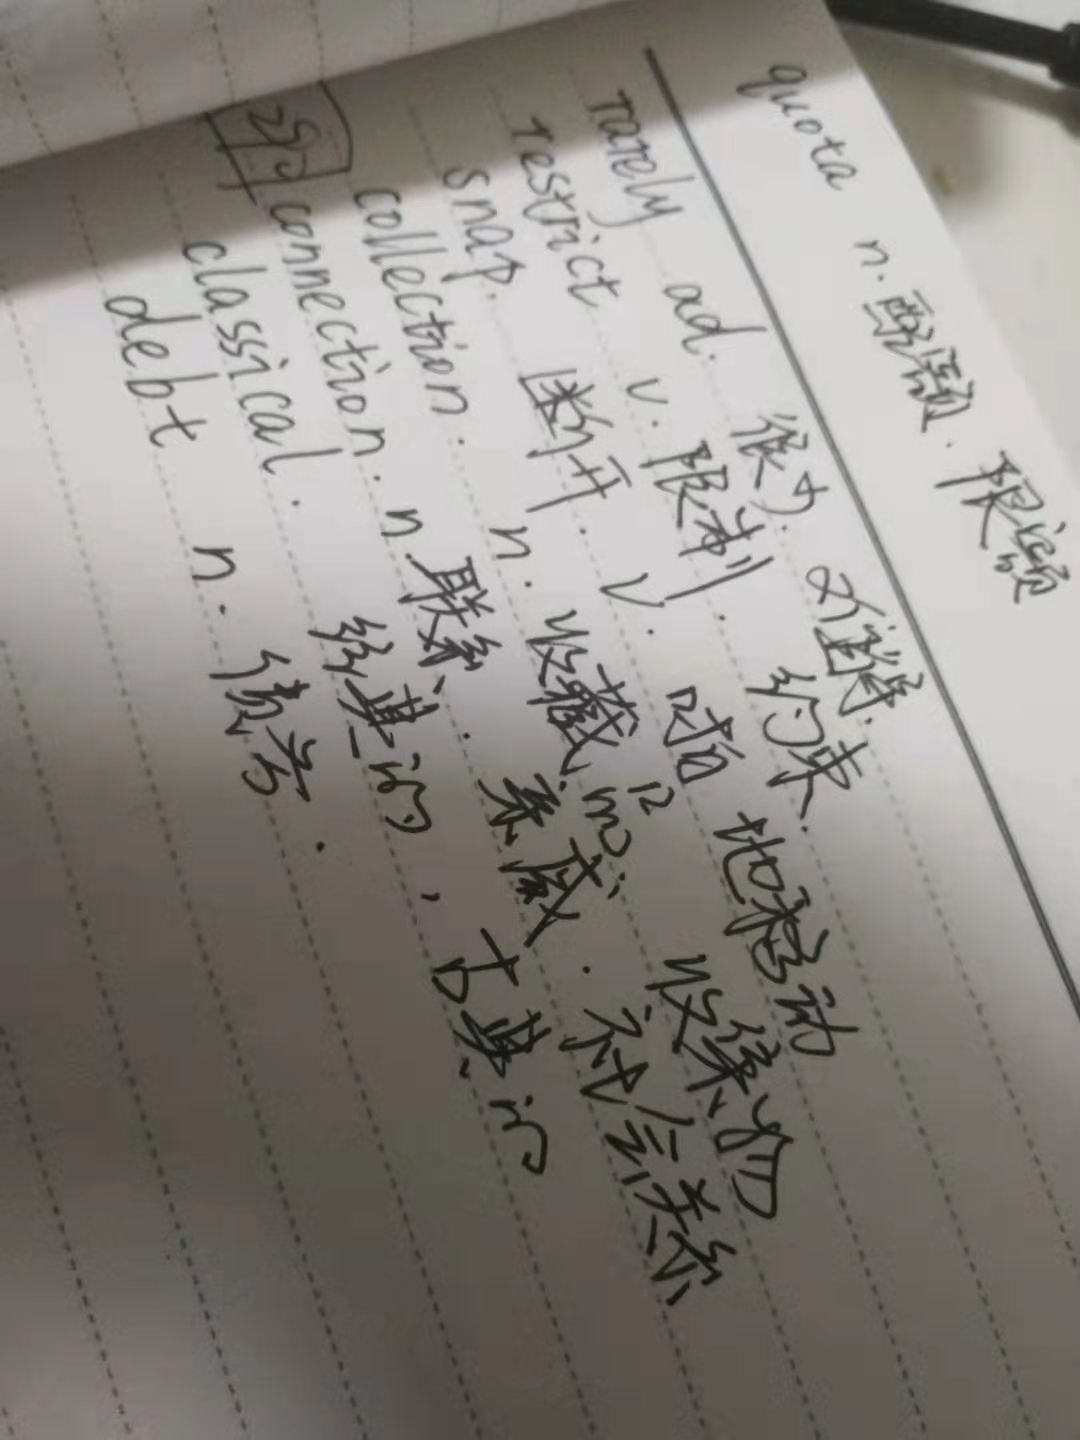 quota n. 配额. 限额
rarely ad. 很少. 不寻常.
restrict v. 限制. 约束.
snap. 断开. v. 啪地移动
collection. n. 收藏品; 收集物
connection. n. 联系. 亲戚. 社会关系
classical. 经典的, 古典的
debt n. 债务.